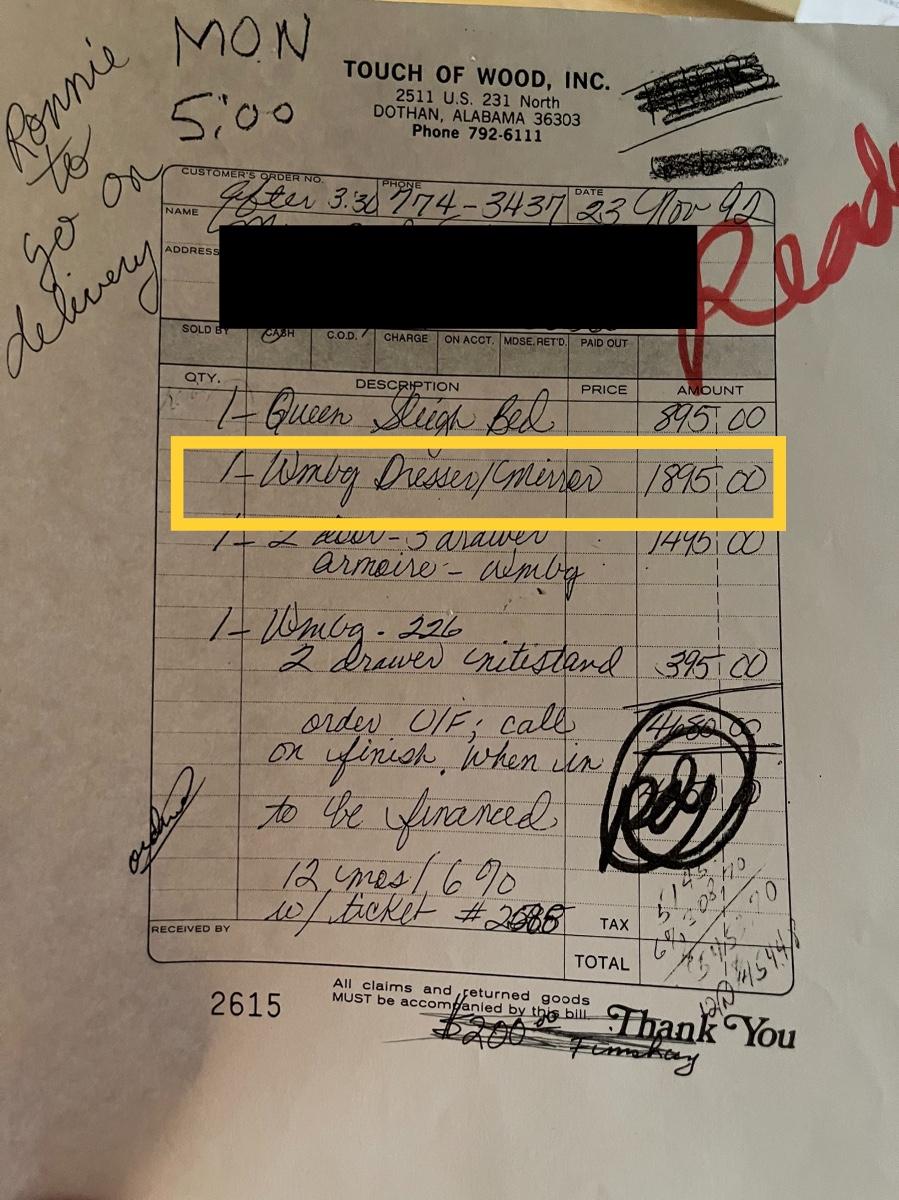 MON
5:00
Ronnie
to
go on
delivery
TOUCH OF WOOD, INC.
2511 U.S. 231 North
DOTHAN, ALABAMA 36303
Phone 792-6111
Ready
CUSTOMER'S ORDER NO. PHONE DATE
after 3:30 774-3437 23 Nov 92
NAME
ADDRESS
SOLD BY CASH C.O.D. CHARGE ON ACCT. MDSE. RET'D. PAID OUT
QTY. DESCRIPTION PRICE AMOUNT
1- Queen Sleigh Bed 895.00
1- Wmbg Dresser/Mirror 1895.00
1- 2 door - 3 drawer 1495.00
armoire - Wmbg
1- Wmbg. 226
2 drawer nitestand 395.00
order U/F; call 4680.00
on finish. When in
to be financed
12 mos/6%
w/ ticket #
ordered
TAX
RECEIVED BY
TOTAL
2615
All claims and returned goods
MUST be accompanied by this bill
Thank You
$200.00